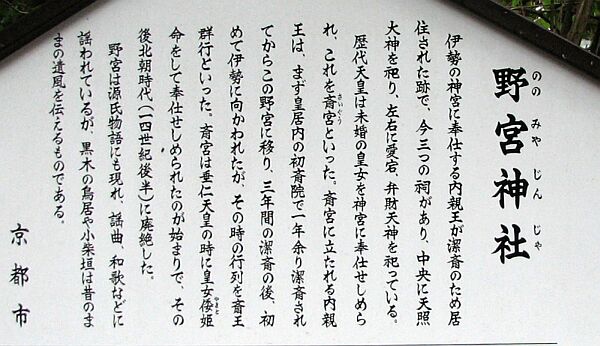 野宮神社
ののみやじんじゃ
伊勢の神宮に奉仕する内親王が潔斎のため居
住された跡で、今三つの祠があり、中央に天照
大神を祀り、左右に愛宕、弁財天神を祀っている。
歴代天皇は未婚の皇女を神宮に奉仕せしめら
れ、これを斎宮といった。斎宮に立たれる内親
さいぐう
王は、まず皇居内の初斎院で一年余り潔斎され
てからこの野宮に移り、三年間の潔斎の後、初
めて伊勢に向かわれたが、その時の行列を斎王
群行といった。斎宮は垂仁天皇の時に皇女倭姫
やまと
命をして奉仕せしめられたのが始まりで、その
後北朝時代（一四世紀後半）に廃絶した。
野宮は源氏物語にも現れ、謡曲、和歌などに
謡われているが、黒木の鳥居や小柴垣は昔のま
まの遺風を伝えるものである。
京都市